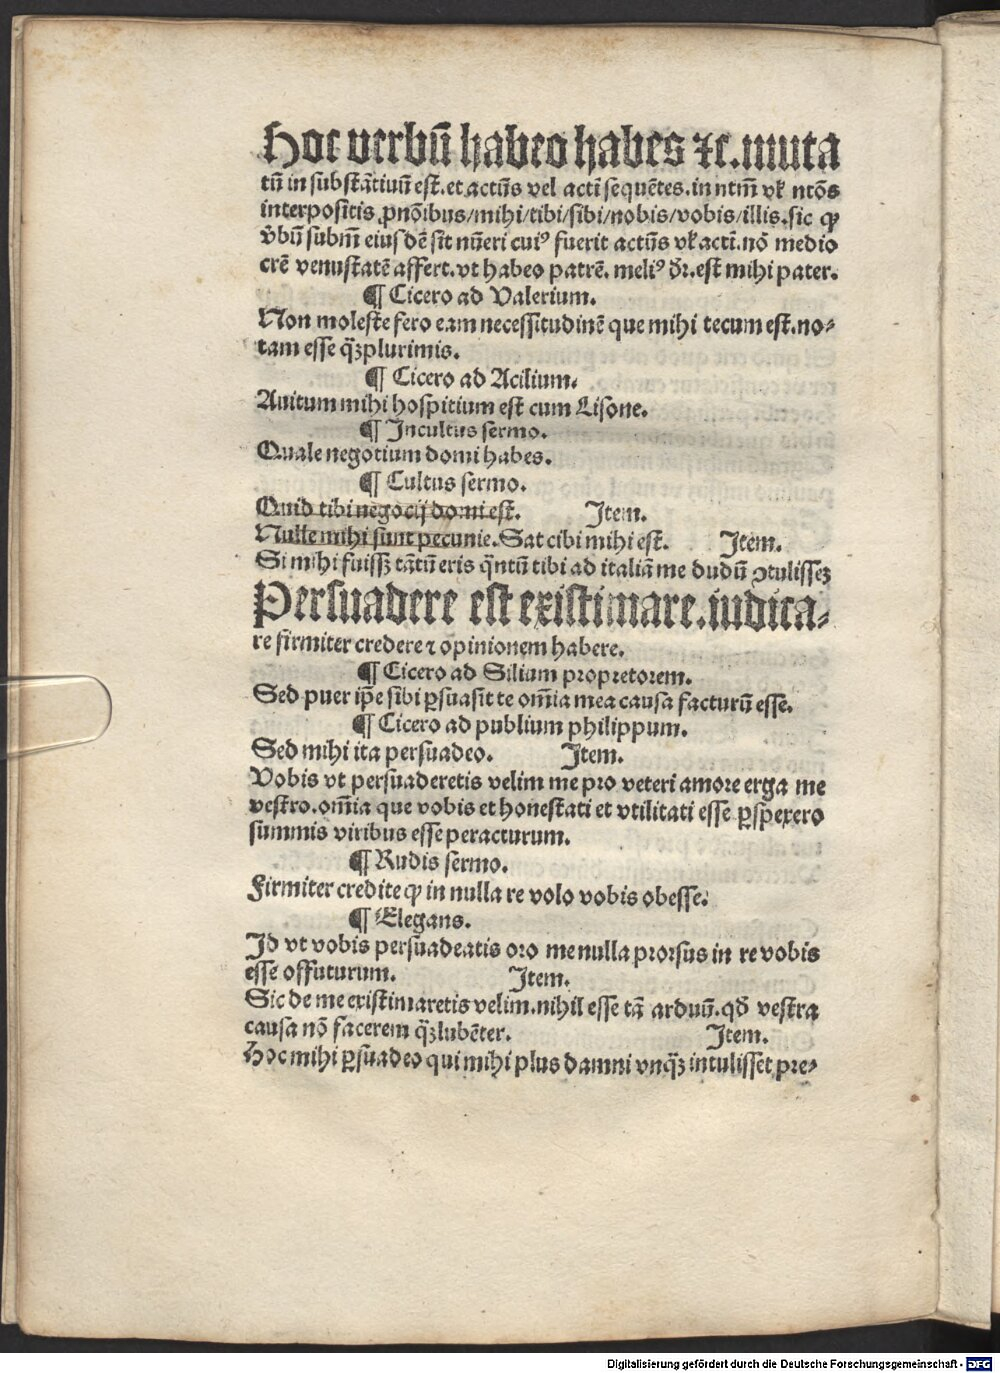 Hoc verbū habeo habes ⁊c. muta
tū in substātiuū est. et actūs vel acti sequētes. in ntm̄ vl' ntōs
interpositis ꝓnōibus/mihi/tibi/sibi/nobis/vobis/illis. sic ꝙ
v̄bū subm̄ eiusdē sit nūeri cuiꝰ fuerit actūs vl' acti. nō medio
crē venustatē affert. vt habeo patrē. meliꝰ dr̄. est mihi pater.
¶ Cicero ad Valerium.
Non moleste fero eam necessitudinē que mihi tecum est. no⸗
tam esse q̄ꝫplurimis.
¶ Cicero ad Acilium.
Auitum mihi hospitium est cum Lisone.
¶ Incultus sermo.
Quale negotium domi habes.
¶ Cultus sermo.
Quid tibi negocij domi est. Item.
Nulle mihi sunt pecunie. Sat cibi mihi est. Item.
Si mihi fuissꝫ tātū eris q̄ntū tibi ad italiā me dudū ꝯtulissez
Persuadere est existimare. iudica⸗
re firmiter credere ⁊ opinionem habere.
¶ Cicero ad Silium propretorem.
Sed puer ip̄e sibi ꝑsuasit te om̄ia mea causa facturū esse.
¶ Cicero ad publium philippum.
Sed mihi ita persuadeo. Item.
Vobis vt persuaderetis velim me pro veteri amore erga me
vestro. om̄ia que vobis et honestati et vtilitati esse ꝑspexero
summis viribus esse peracturum.
¶ Rudis sermo.
Firmiter credite ꝙ in nulla re volo vobis obesse.
¶ Elegans.
Id vt vobis persuadeatis oro me nulla prorsus in re vobis
esse offuturum. Item.
Sic de me existimaretis velim. nihil esse tā arduū. qd̄ vestra
causa nō facerem q̄ꝫlubēter. Item.
Hoc mihi ꝑsuadeo qui mihi plus damni vnq̄ꝫ intulisset pre⸗
Digitalisierung gefördert durch die Deutsche Forschungsgemeinschaft - DFG